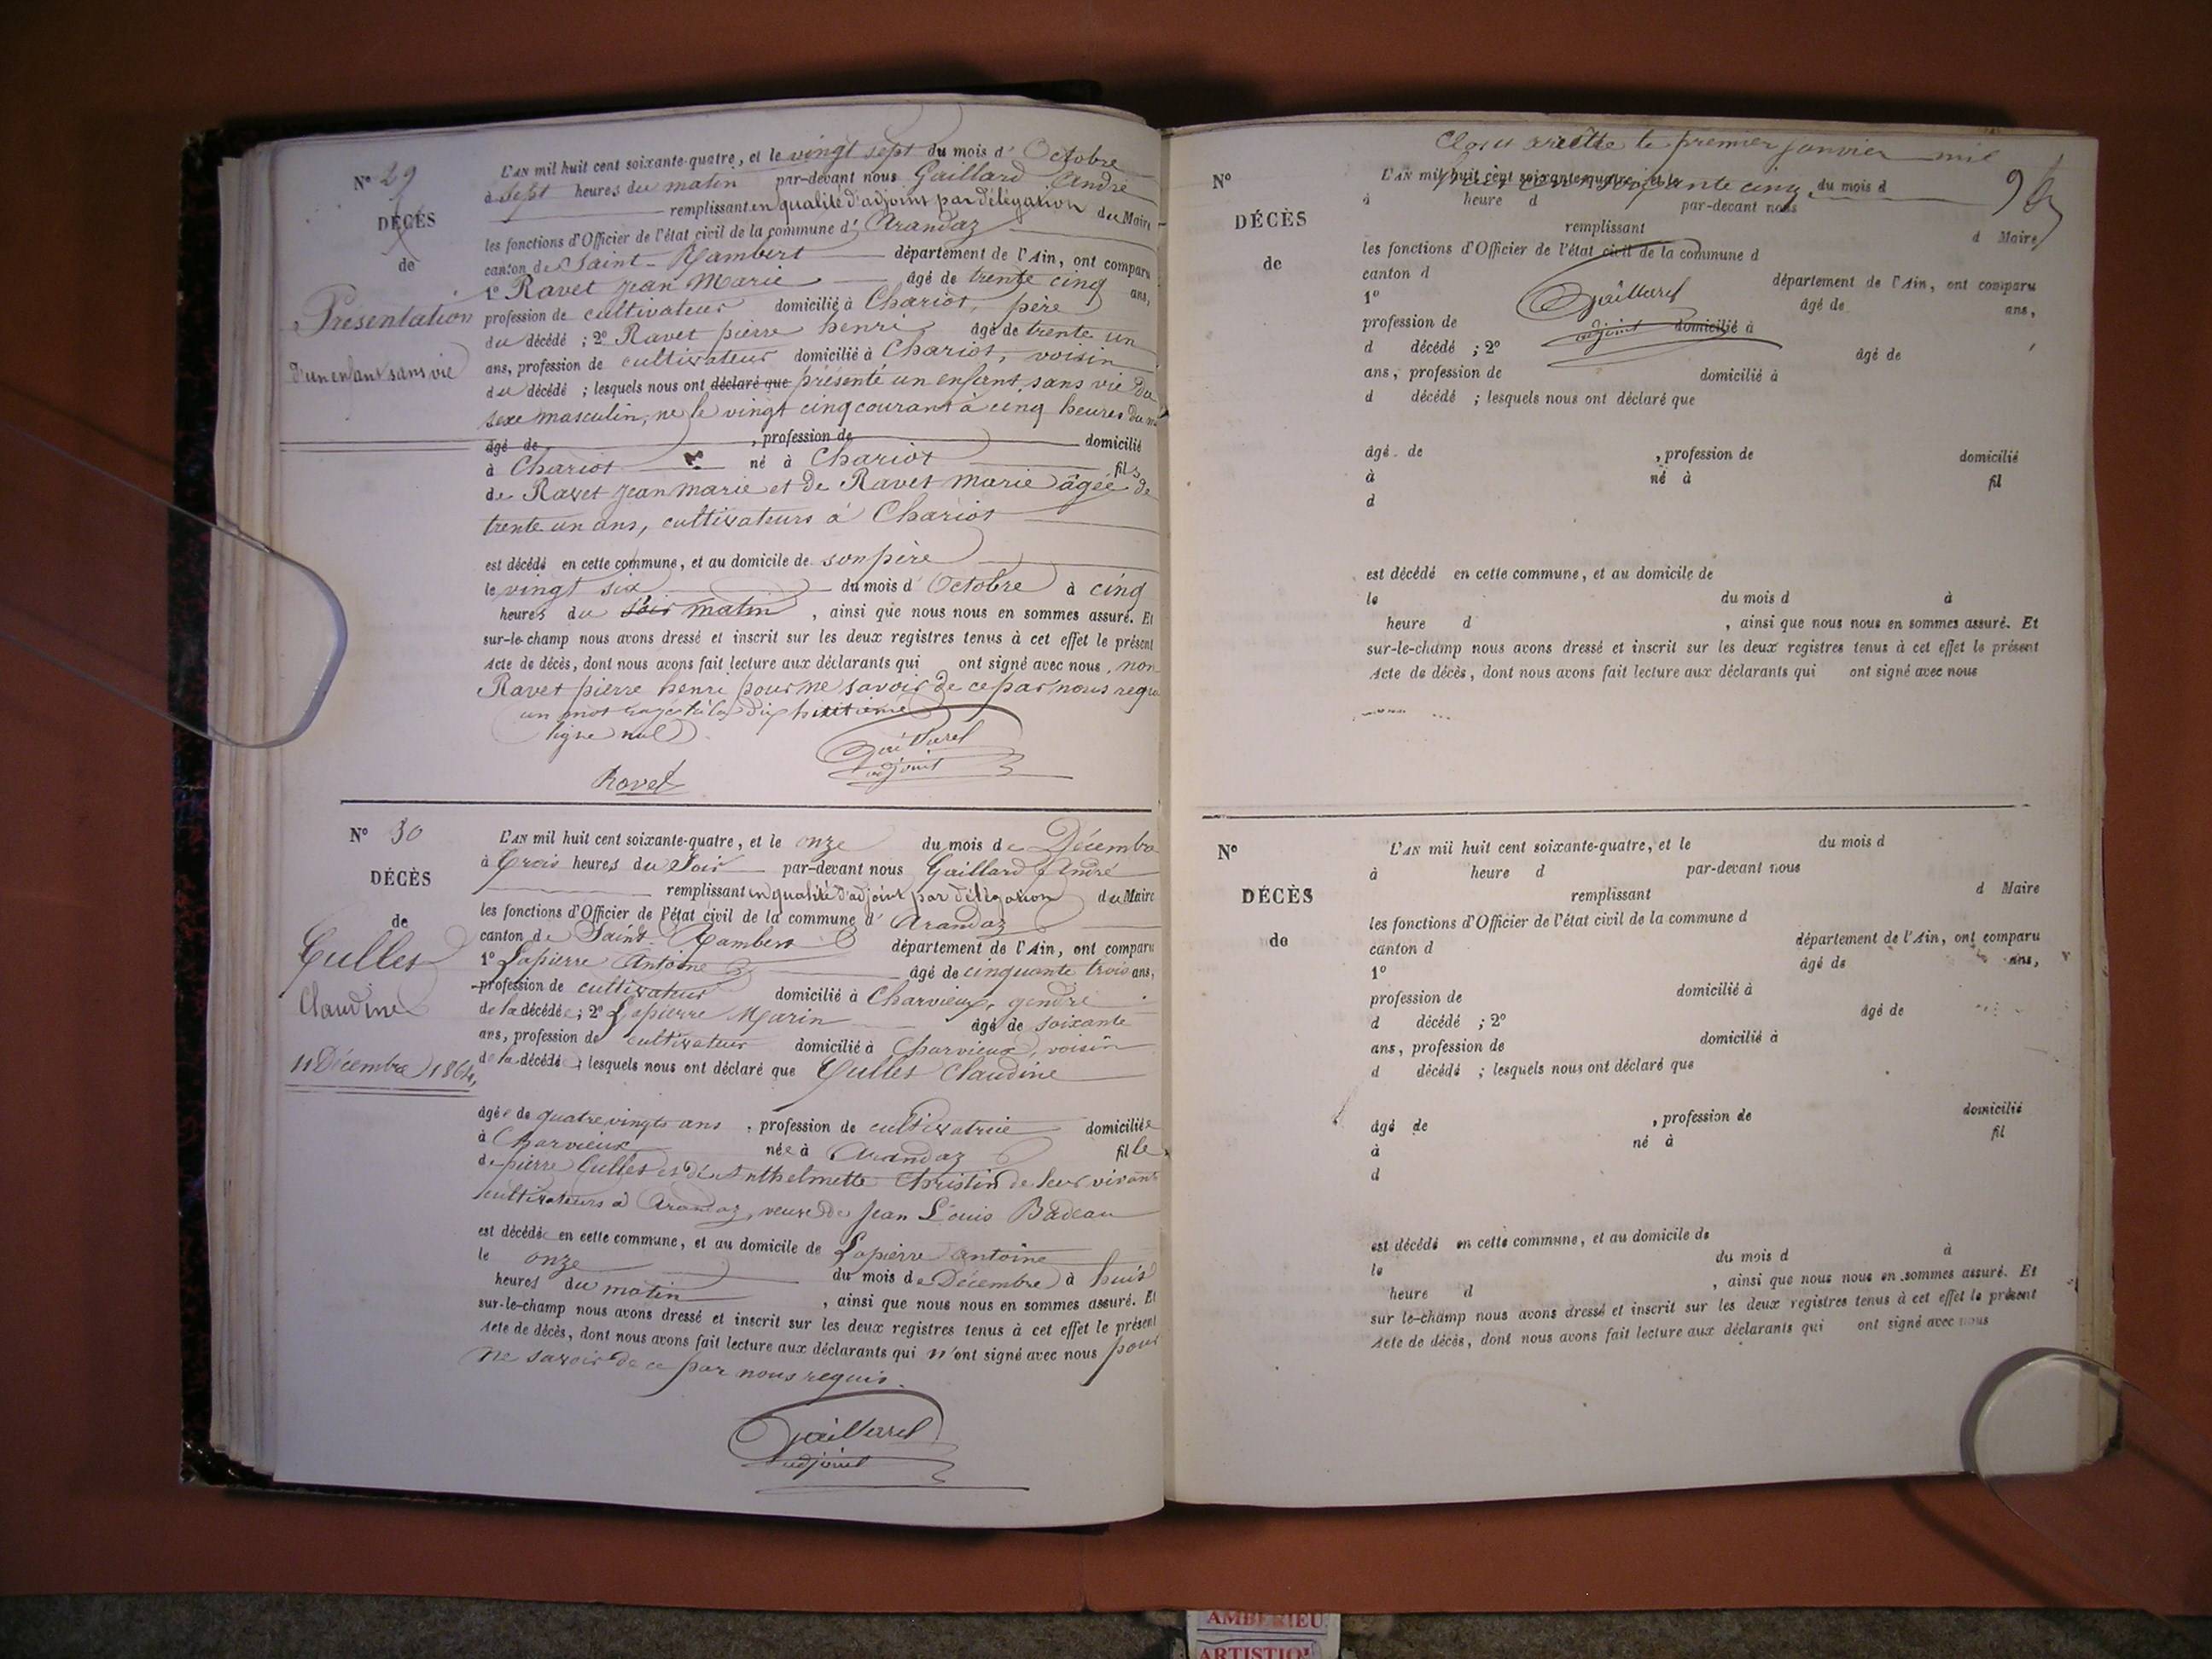 N° 29
DÉCÈS
de
Présentation
d'un enfant sans vie
L'AN mil huit cent soixante-quatre, et le vingt sept du mois d' Octobre
à sept heures du matin par-devant nous Gaillard André
remplissant en qualité d'adjoint par délégation du Maire
les fonctions d'Officier de l'état civil de la commune d' Arandaz
canton de Saint-Rambert département de l'Ain, ont comparu
1° Ravet jean Marie âgé de trente cinq ans,
profession de cultivateur domicilié à Chariot, père
du décédé ; 2° Ravet pierre henri âgé de trente un
ans, profession de cultivateur domicilié à Chariot, voisin
du décédé ; lesquels nous ont déclaré que présenté un enfant sans vie du
sexe masculin, né le vingt cinq courant à cinq heures du
âgé de , profession de domicilié
à Chariot né à Chariot fils
de Ravet jean marie et de Ravet marie âgée de
trente un ans, cultivateurs à Chariot
est décédé en cette commune, et au domicile de son père
le vingt six du mois d' Octobre à cinq
heures du soir matin , ainsi que nous nous en sommes assuré. Et
sur-le-champ nous avons dressé et inscrit sur les deux registres tenus à cet effet le présent
Acte de décès, dont nous avons fait lecture aux déclarants qui ont signé avec nous, non
Ravet pierre henri pour ne savoir de ce par nous requis
un mot rayé à la dix huitième
ligne nul
Gaillard
adjoint
Ravet
N° 30
DÉCÈS
de
Culles
Claudine
11 Décembre 1864
L'AN mil huit cent soixante-quatre, et le onze du mois de Décembre
à trois heures du soir par-devant nous Gaillard André
remplissant en qualité d'adjoint par délégation du Maire
les fonctions d'Officier de l'état civil de la commune d' Arandaz
canton de Saint-Rambert département de l'Ain, ont comparu
1° Lapierre Antoine âgé de cinquante trois ans,
profession de cultivateur domicilié à Charvieux, gendre
de la décédée ; 2° Lapierre Marin âgé de soixante
ans, profession de cultivateur domicilié à Charvieux, voisin
de la décédée ; lesquels nous ont déclaré que Culles Claudine
âgée de quatre vingts ans , profession de cultivatrice domiciliée
à Charvieux née à Arandaz fille
de pierre Culles et de Anthelmette Christin de leur vivant
cultivateurs à Arandaz, veuve de Jean Louis Badeau
est décédée en cette commune, et au domicile de Lapierre Antoine
le onze du mois de Décembre à huit
heures du matin , ainsi que nous nous en sommes assuré. Et
sur-le-champ nous avons dressé et inscrit sur les deux registres tenus à cet effet le présent
Acte de décès, dont nous avons fait lecture aux déclarants qui n'ont signé avec nous pour
ne savoir de ce par nous requis.
Gaillard
adjoint
Clos et arrêtté le premier janvier mil
huit cent soixante cinq
N°
DÉCÈS
de
L'AN mil huit cent soixante-quatre, et le du mois d
à heure d par-devant nous
remplissant d Maire
les fonctions d'Officier de l'état civil de la commune d
canton d département de l'Ain, ont comparu
Gaillard
adjoint
1° âgé de ans,
profession de domicilié à
d décédé ; 2° âgé de
ans, profession de domicilié à
d décédé ; lesquels nous ont déclaré que
âgé de , profession de domicilié
à né à fil
d
est décédé en cette commune, et au domicile de
le du mois d à
heure d , ainsi que nous nous en sommes assuré. Et
sur-le-champ nous avons dressé et inscrit sur les deux registres tenus à cet effet le présent
Acte de décès, dont nous avons fait lecture aux déclarants qui ont signé avec nous
N°
DÉCÈS
de
L'AN mil huit cent soixante-quatre, et le du mois d
à heure d par-devant nous
remplissant d Maire
les fonctions d'Officier de l'état civil de la commune d
canton d département de l'Ain, ont comparu
1° âgé de ans,
profession de domicilié à
d décédé ; 2° âgé de
ans, profession de domicilié à
d décédé ; lesquels nous ont déclaré que
âgé de , profession de domicilié
à né à fil
d
est décédé en cette commune, et au domicile de
le du mois d à
heure d , ainsi que nous nous en sommes assuré. Et
sur le-champ nous avons dressé et inscrit sur les deux registres tenus à cet effet le présent
Acte de décès, dont nous avons fait lecture aux déclarants qui ont signé avec nous
AMBERIEU
ARTISTIQ